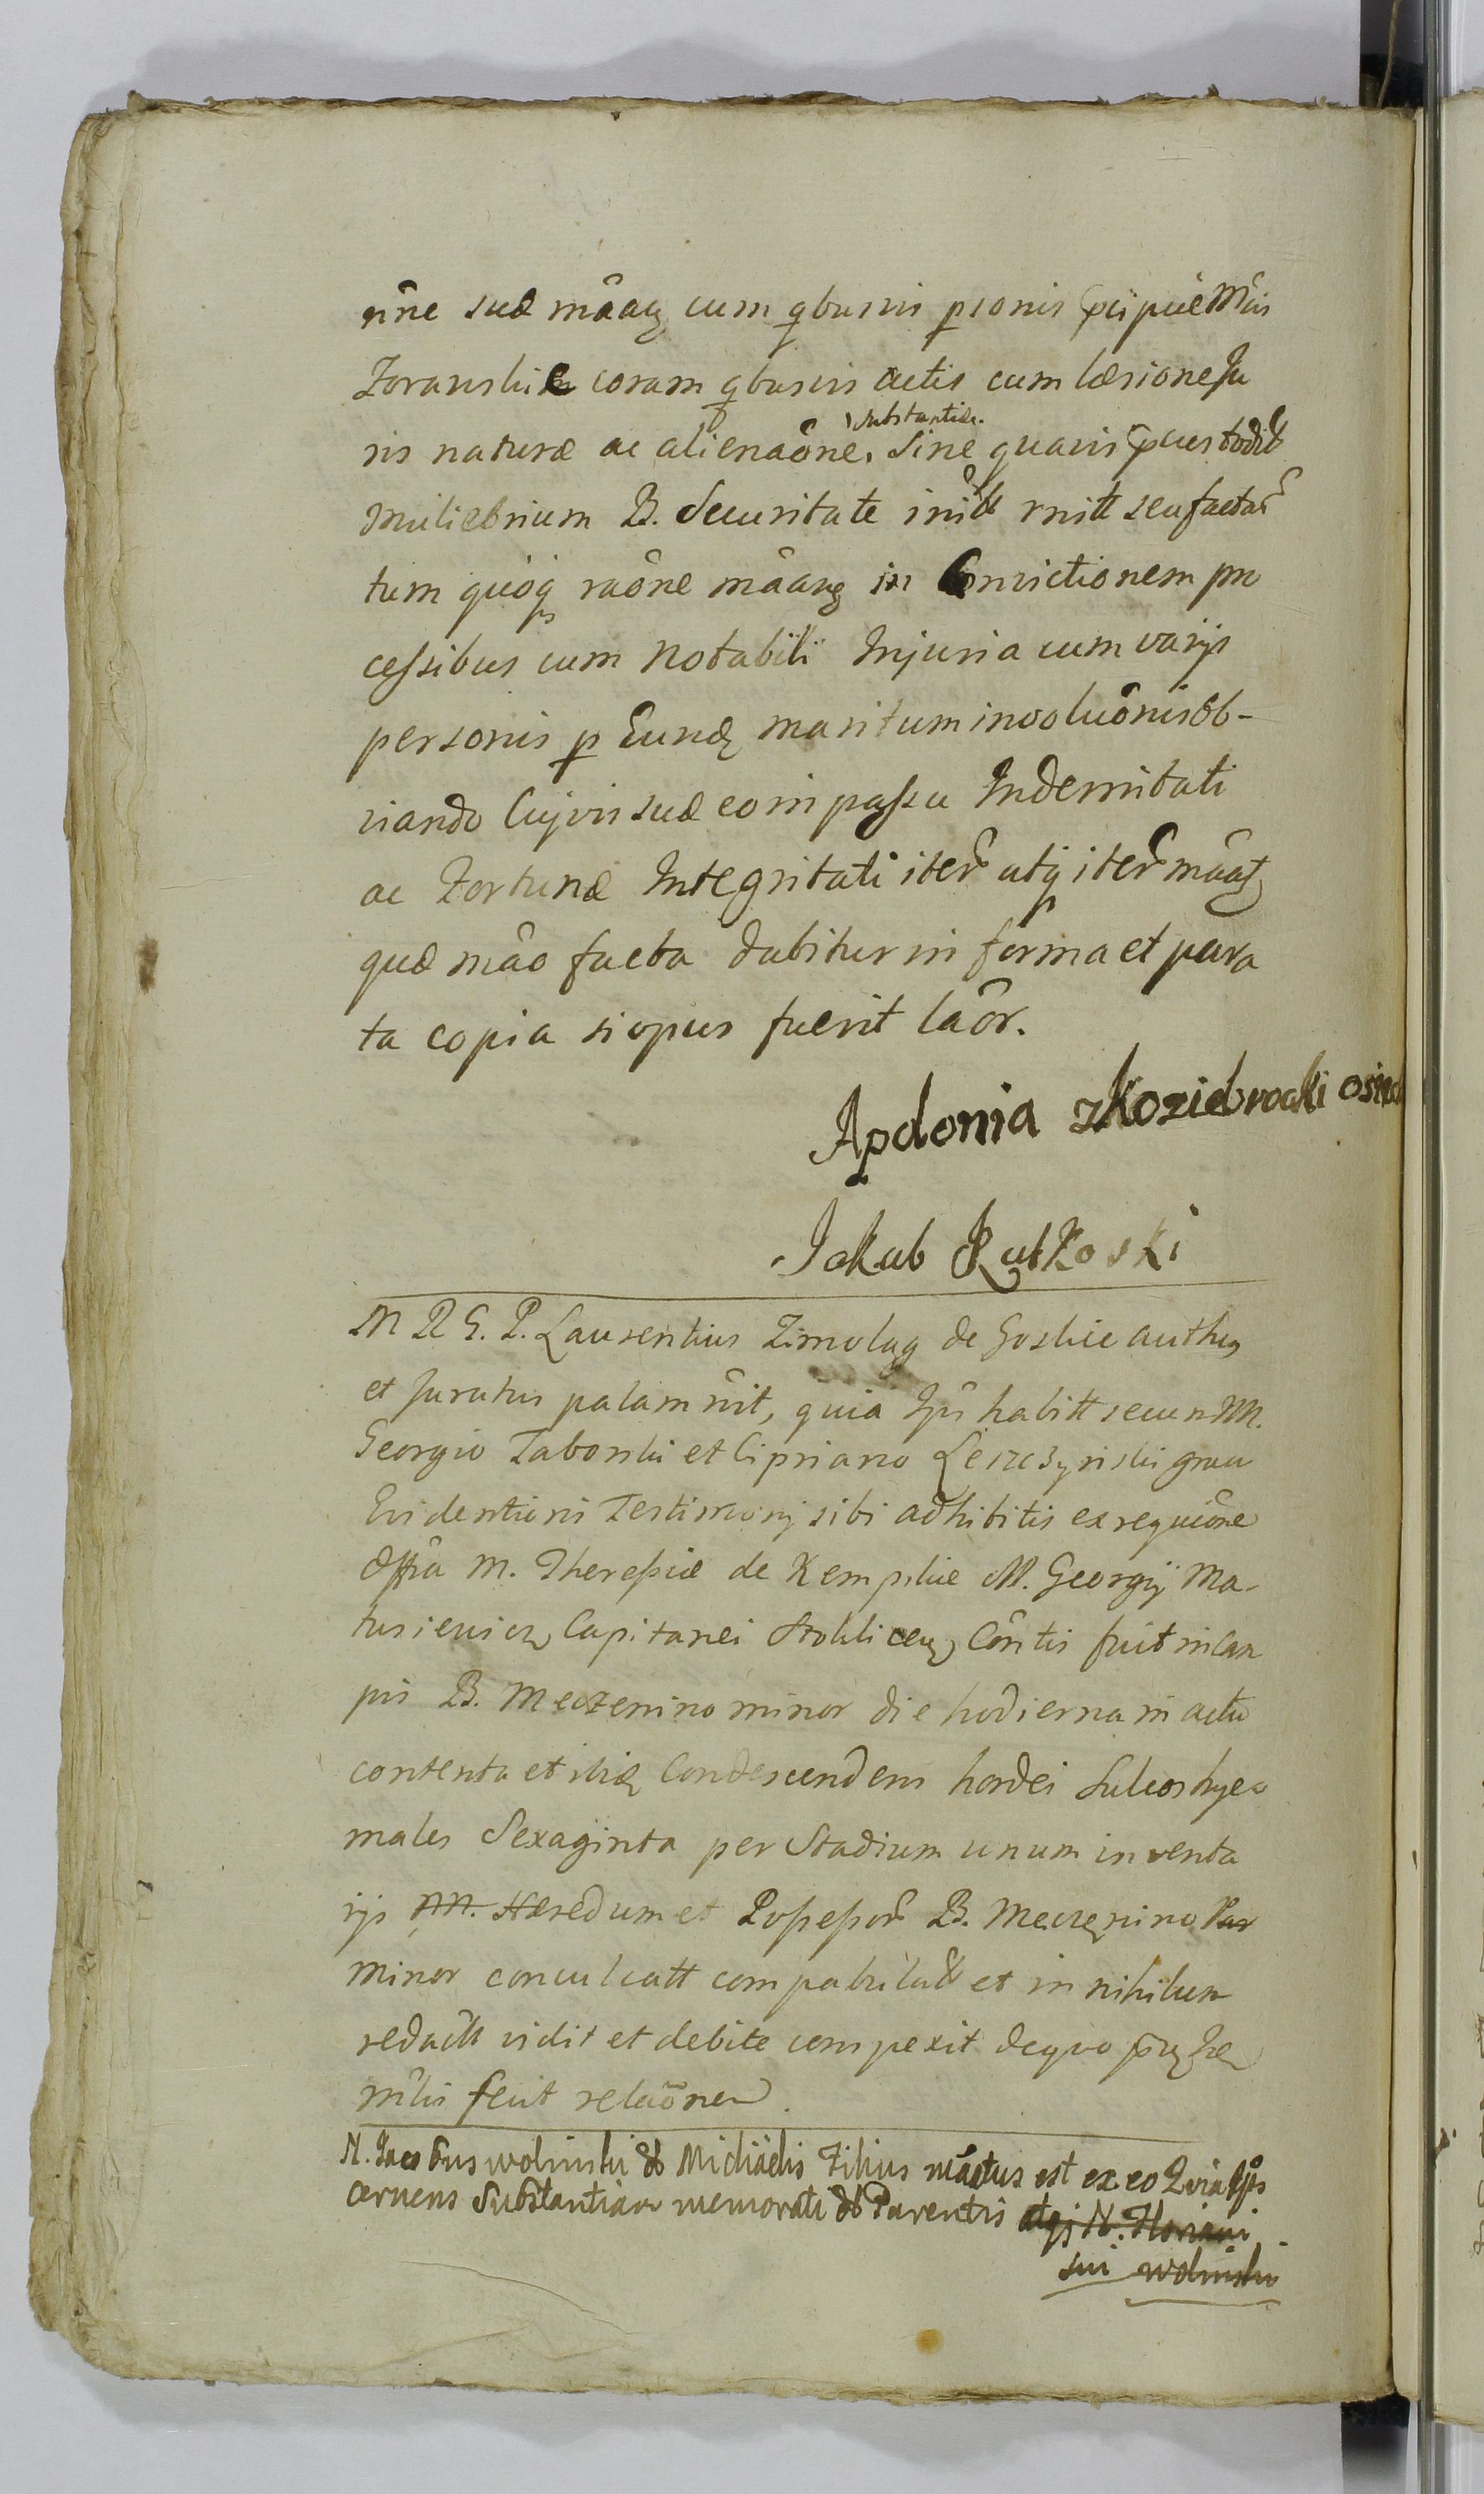 nne suæ mãaq cum qbusvis psonis pcipue Mcis
Zoranskie coram qbusvis actis cum læsione Ju
ris naturæ ac alienaõne, substantiæ. Sine quavis
muliebrium B. Securitate initt seu factar
tum quoq raõne mãarq in Convictionem pro
cessibus cum notabili Injuria cum varijs
personis p Eundq maritum involuõnis ob-
viando Cujvis suæ eo in passu Indemnitati
ac Fortunæ Integritati iter atq iter mãat
quæ mão facta dabitur in forma et para
ta copia si opus fuerit lãor.
Apolonia z Koziebrocki
Jakub Rutkoski
M R G. P. Laurentius Zimolag de Goskie authq
et juratus palam rnit, quia Ips habitt secum NN.
Georgio Taborski et Cipriano Leszczynski gratia
Evidentioris Testimonij sibi adhibitis ex requiõne
M. Theressiæ de Kempskie M. Georgij Ma-
tusiewicz Capitanei Stokliceñ Cõntis fuit in Cam
pis B. Meczenino minor die hodierna in actu
contenta et ibiq Condescendens hordei Sulcos hye
males Sexaginta per Stadium unum inventa
rijs NN. Hæredum et Possessor B. Meczenino
minor conculcatt compabulatt et in nihilum
redactt vidit et debite conspexit de quo
fecit relaõnem.
N. Jacobus wolinski Michaelis Filius mãatus est ex eo Quia Ips
cernens Substantiam memorati Parentis atqj N. Floriani
sui wolinski